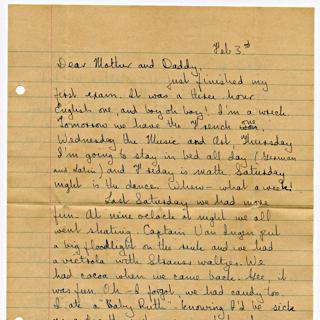 Feb 3rd
Dear Mother and Daddy,
Just finished my
first exam. It was a three hour
English one, and boy oh boy! I'm a wreck.
Tomorrow we have the French one,
Wednesday the Music and Art, Thursday
I'm going to stay in bed all day (German
and Latin) and Friday is math. Saturday
night is the dance. Whew - what a week!
Last Saturday we had more
fun. At nine oclock at night we all
went skating. Captain Van put
a big floodlight on the rink and we had
a victrola with Strauss waltzes. We
had cocoa when we came back. Gee, it
was fun. Oh - I forgot, we had candy too.
I ate a "Baby Ruth" - knowing I'd be sick